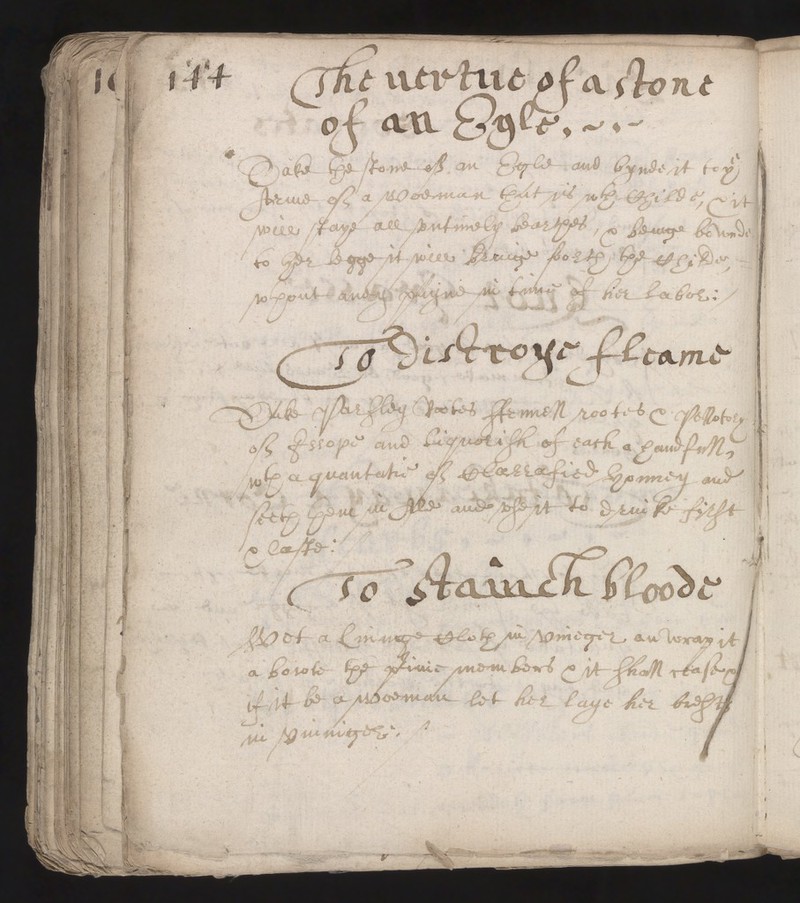 144
The vertue of a stone
of an Egle.
Take the stone of an Egle and bynde it to ye
arme of a Woeman that is wth Childe, & it
will staye all untimely bearthes, & beinge bownde
to her legge it will bringe forth the Childe,
wthout any payne in time of her labor:
To Distroye fleame
Take Parsley Rootes ffennell rootes & Pellotory
of Issope and Liquorish of each a handfull,
wth a quantatie of Clarrafied Honney and
seeth them in Ale and use it to drinke first
& laste:
To stainch bloode
Wet a Lininge Cloth in Vineger an wrap it
a bowte the privie members & it shall cease &
if it be a Woeman let her laye her brests
in Vinniger.